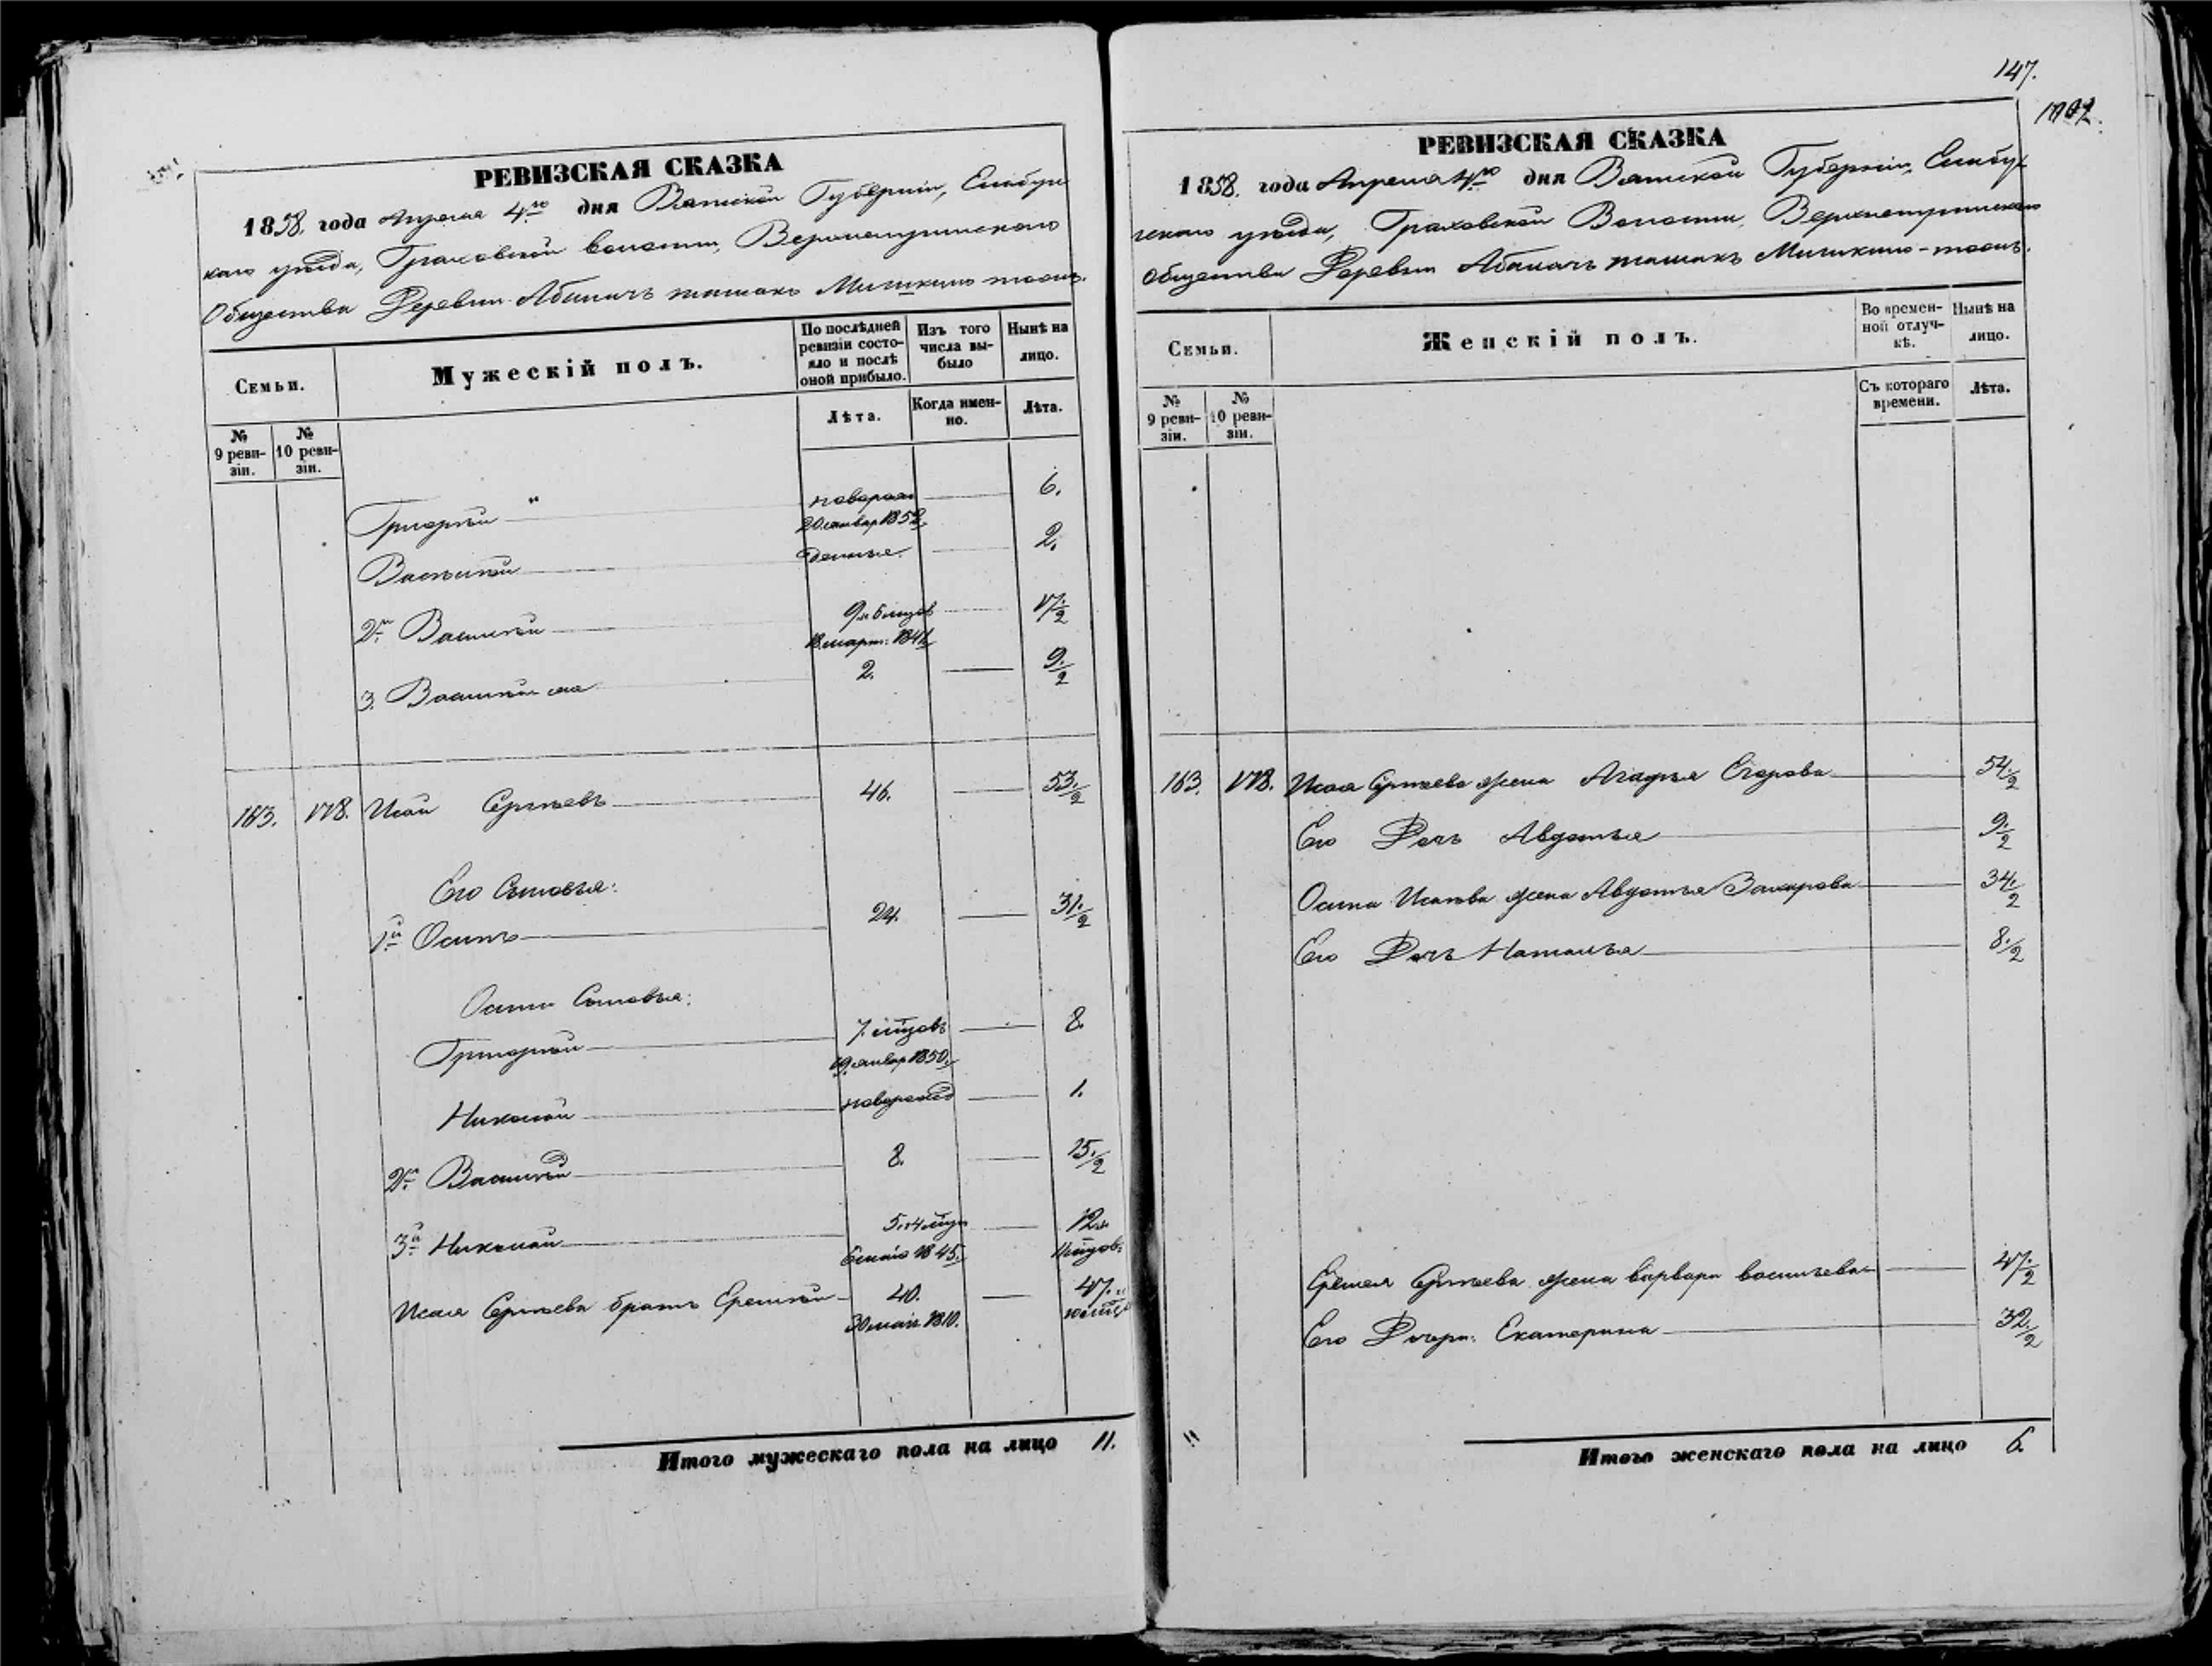 РЕВИЗСКАЯ СКАЗКА
1858. года Апреля 4го дня Вятской Губерніи, Елабуж
каго уѣзда, Граховской волости,
Общества Деревни мошкъ Мишкино тоожъ.
Семьи.
Мужескій полъ.
По послѣдней ревизіи состояло и послѣ оной прибыло.
Изъ того числа выбыло
Нынѣ на лицо.
№ 9 ревизіи.
№ 10 ревизіи.
Лѣта.
Когда именно.
Лѣта.
Григорій " новорож 6.
20 январ 1852
Василій 2.
2й Василій 9 м 17 1/2
18 март: 1841
3. Василій же 2. 9 1/2
163. 178. Исай Сергѣевъ 46. 53 1/2
Его Сыновья:
1й Осипъ 24. 31 1/2
Осипа Сыновья:
Григорій 7. мцовъ 8.
19 январ 1850.
Николай новорожд 1.
2й Василій 8. 15 1/2
3й Николай 5. 12 и
6 мая 1845. 11 мцовъ
Исая Сергѣева братъ Еремѣй 40. 47. и
30 мая 1810. 10 мцо
Итого мужескаго пола на лицо 11.
147.
РЕВИЗСКАЯ СКАЗКА
1858. года Апреля 4го дня Вятской Губерніи, Елабуж
скаго уѣзда, Граховской Волости,
Общества Деревни мошкъ Мишкино-тоожъ.
Семьи.
Женскій полъ.
Во временной отлучкѣ.
Нынѣ на лицо.
№ 9 ревизіи.
№ 10 ревизіи.
Съ котораго времени.
Лѣта.
163. 178. Исая Сергѣева жена Агафья Егорова 54 1/2
Его Дочь Авдотья 9 1/2
Осипа Исаева жена Авдотья Захарова 34 1/2
Его Дочь Наталья 8 1/2
Еремея Сергѣева жена Варвара Васильева 47 1/2
Его Дочери: Екатерина 32 1/2
Итого женскаго пола на лицо 6.